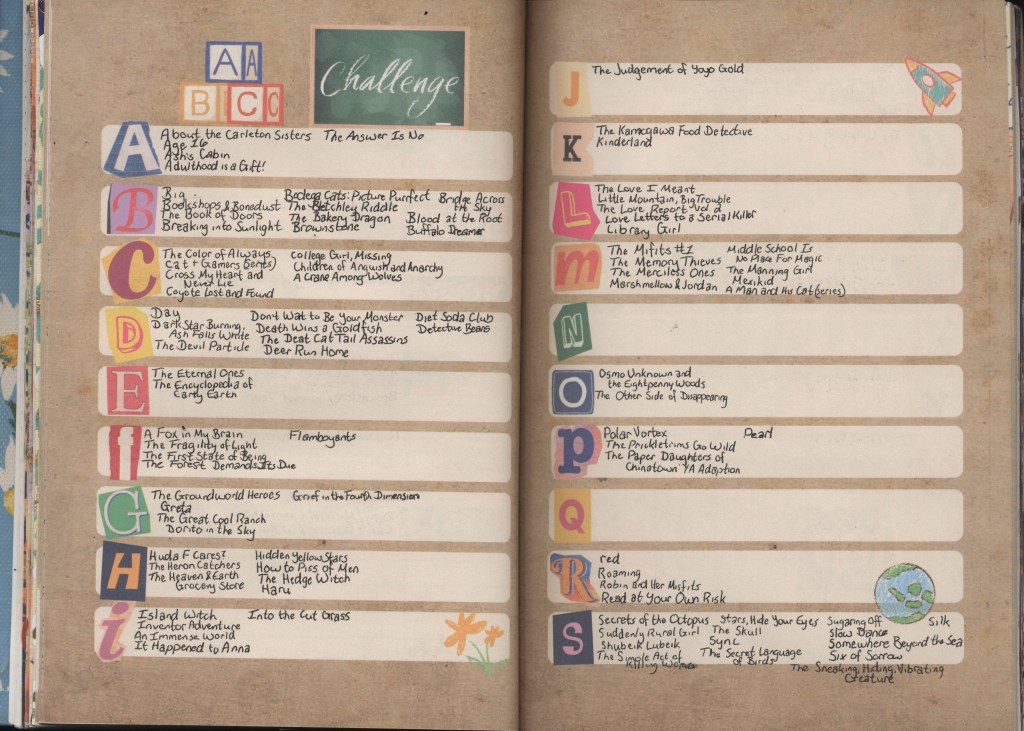 A A
B C C
Challenge
A
About the Carleton Sisters The Answer Is No
Age 16
Ash's Cabin
Adulthood is a Gift!
B
Big Bodega Cats: Picture Purrfect Bridge Across the Sky
Bookshops & Bonedust The Bletchley Riddle
The Book of Doors The Bakery Dragon Blood at the Root
Breaking into Sunlight Brownstone Buffalo Dreamer
C
The Color of Always College Girl, Missing
Cat + Gamers (series) Children of Anguish and Anarchy
Cross My Heart and A Crane Among Wolves
Never Lie
Coyote Lost and Found
D
Day Don't Wait to Be Your Monster Diet Soda Club
Dark Star Burning, Death Wins a Goldfish Detective Beans
Ash Falls White The Deat Cat Tail Assassins
The Devil Particle Deer Run Home
E
The Eternal Ones
The Encyclopedia of
Early Earth
f
A Fox in My Brain Flamboyants
The Fragility of Light
The First State of Being
The Forest Demands Its Due
G
The Groundworld Heroes Grief in the Fourth Dimension
Greta
The Great Cool Ranch
Dorito in the Sky
H
Huda F Cares? Hidden Yellow Stars
The Heron Catchers How to Piss of Men
The Heaven & Earth The Hedge Witch
Grocery Store Haru
i
Island Witch Into the Cut Grass
Inventor Adventure
An Immense World
It Happened to Anna
J
The Judgement of Yoyo Gold
K
The Kamogawa Food Detective
Kinderland
L
The Love I Meant
Little Mountain, Big Trouble
The Love Report Vol. 2
Love Letters to a Serial Killer
Library Girl
m
The Mifits #1 Middle School Is
The Memory Thieves No Place For Magic
The Merciless Ones The Manning Girl
Marshmellow & Jordan Mexikid
A Man and His Cat (series)
N
O
Osmo Unknown and
the Eightpenny Woods
The Other Side of Disappearing
p
Polar Vortex Pearl
The Prickletrims Go Wild
The Paper Daughters of
Chinatown: YA Adaption
Q
R
red
Roaming
Robin and Her Misfits
Read at Your Own Risk
S
Secrets of the Octopus Stars, Hide Your Eyes Sugaring Off Silk
Suddenly Rural Girl The Skull Slow Dance
Shubeik Lubeik Sync Somewhere Beyond the Sea
The Simple Act of The Secret Language Six of Sorrow
Killing Woman of Birds The Sneaking, Hiding, Vibrating
Creature